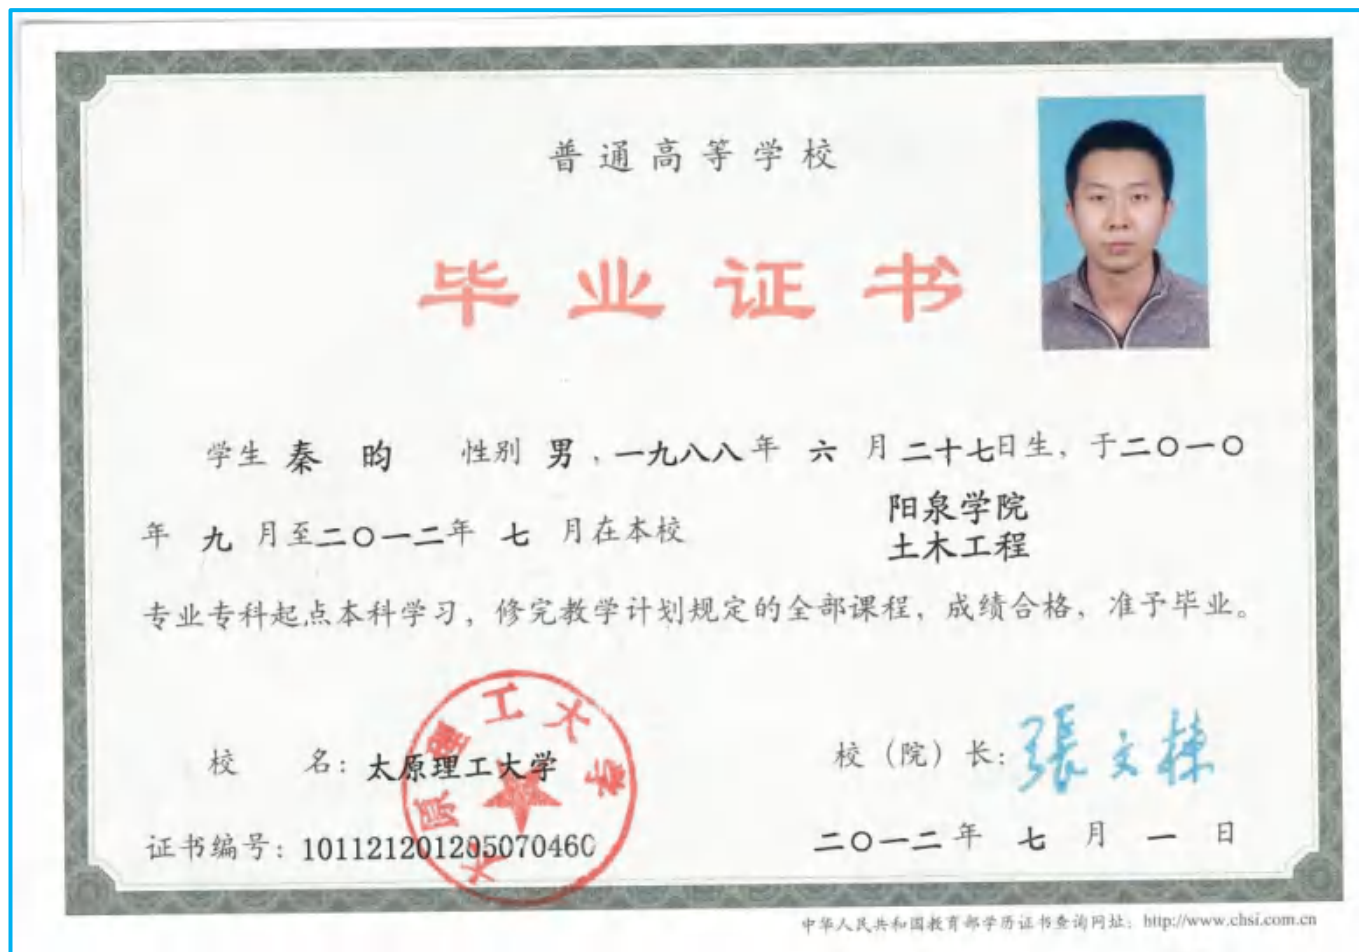 普通高等学校
毕业证书
学生 秦 昀 性别 男，一九八八年 六 月 二十七日生，于二〇一〇
年 九 月至二〇一二年 七 月在本校 阳泉学院
土木工程
专业专科起点本科学习，修完教学计划规定的全部课程，成绩合格，准予毕业。
太原理工大学
校 名：太原理工大学
校（院）长：張文棟
证书编号：101121201205070460
二〇一二年 七 月 一 日
中华人民共和国教育部学历证书查询网址：http://www.chsi.com.cn